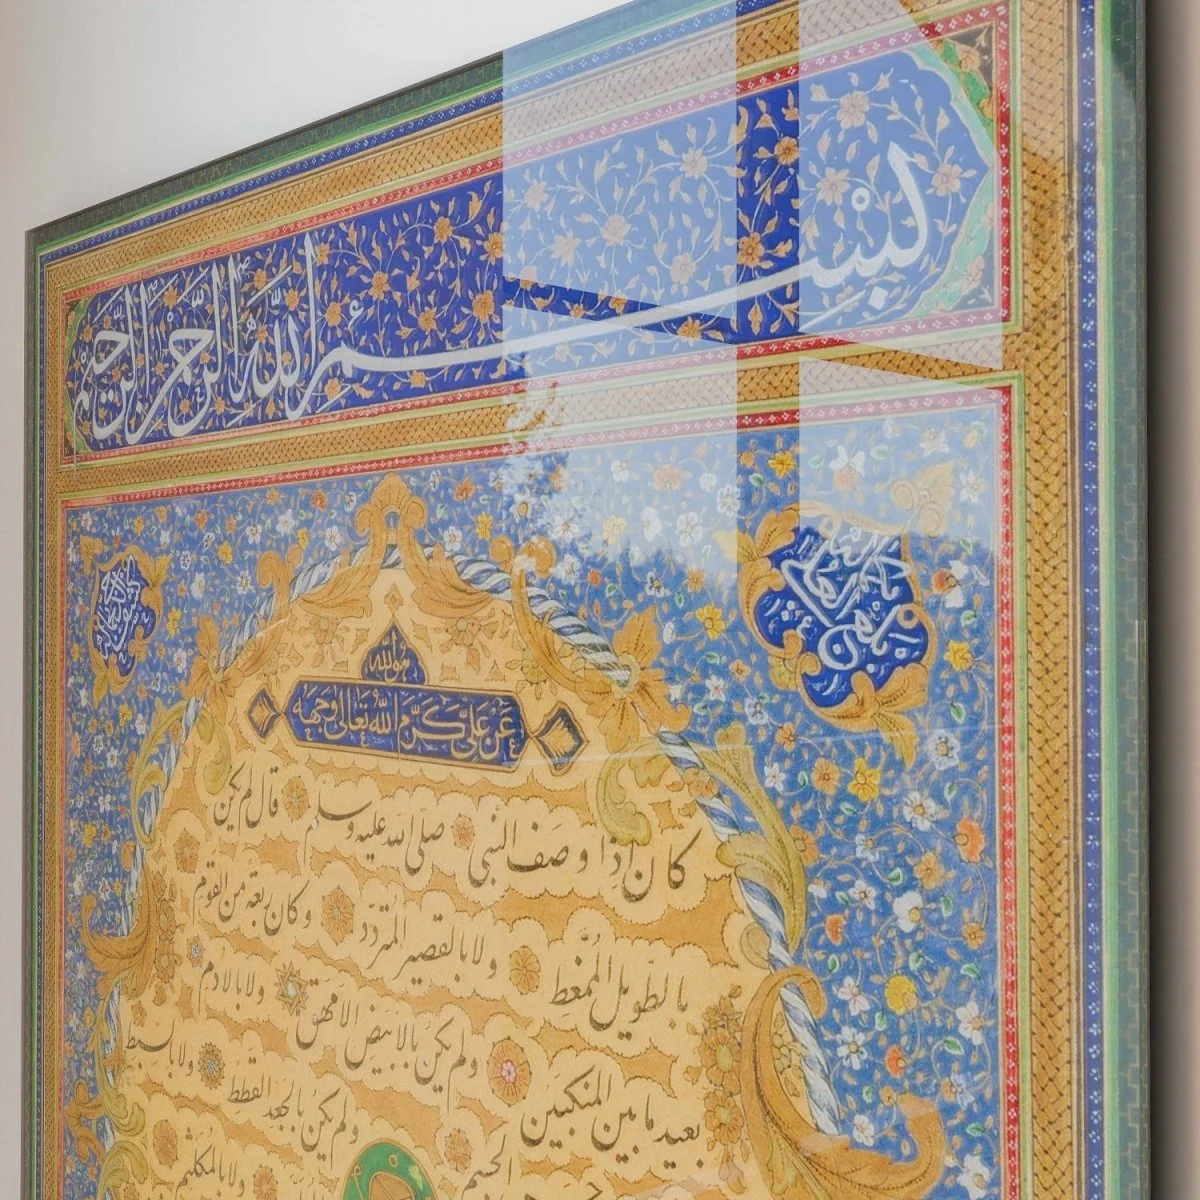 بسم الله الرحمن الرحيم
هو الله
عن علي كرم الله تعالى وجهه
كان اذا وصف النبي صلى الله عليه وسلم قال لم يكن
بالطويل الممغط ولا بالقصير المتردد وكان ربعة من القوم
ولم يكن بالابيض الامهق ولا بالادم
بعيد ما بين المنكبين ولم يكن بالجعد القطط ولا بالسبط
الجسم ولا بالمكلثم